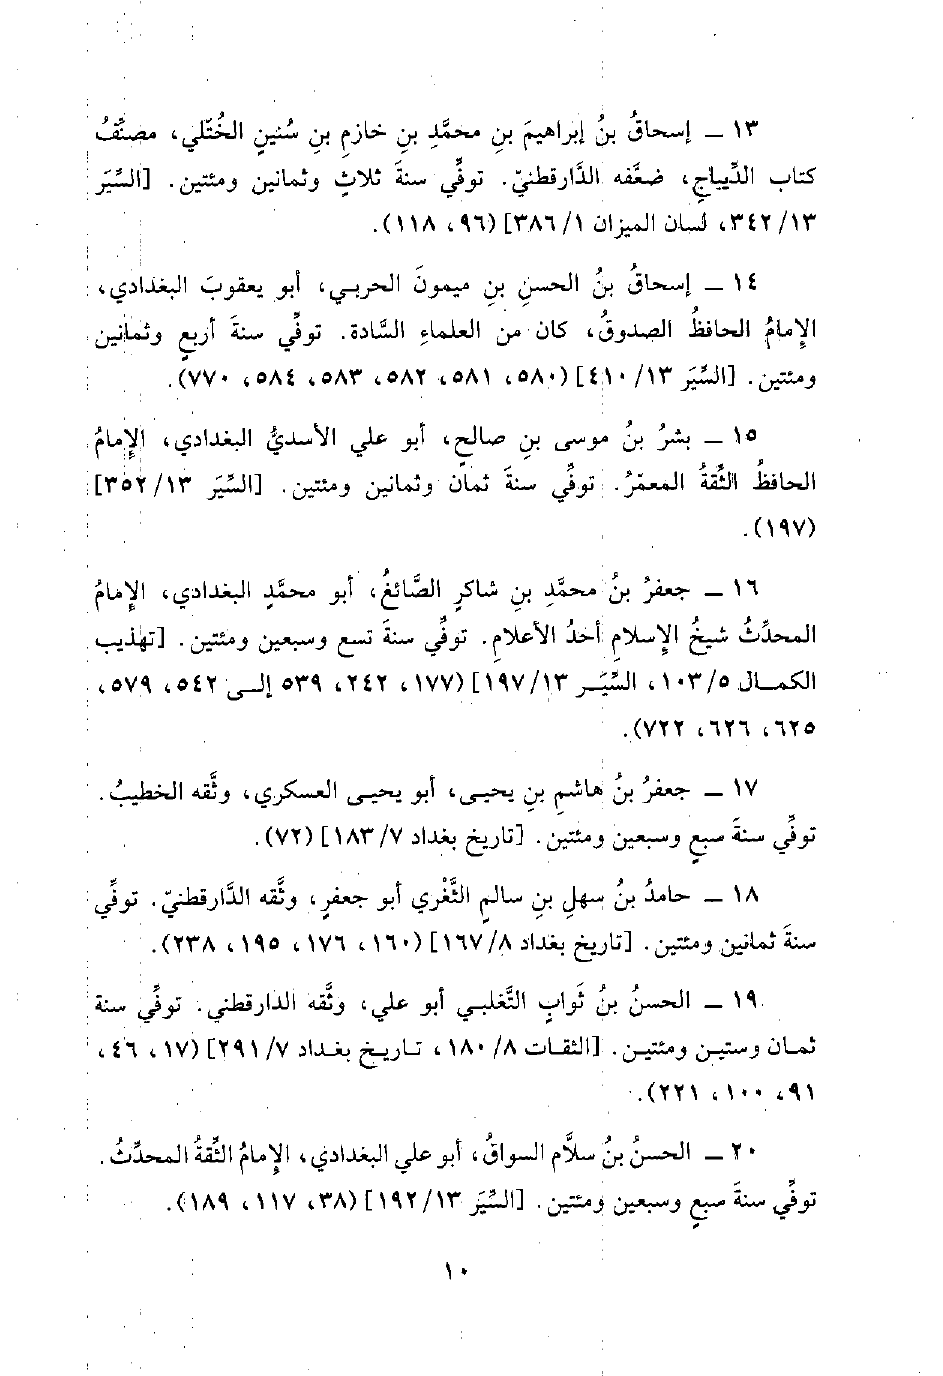 ١٣ ـ إسحاقُ بنُ إبراهيمَ بنِ محمَّدِ بنِ خازمِ بنِ سُنينِ الخُتّلي، مصنِّفُ
كتاب الدِّيباجِ، ضعَّفه الدَّارقطنيّ. توفِّي سنةَ ثلاثٍ وثمانين ومئتين. [السِّيَر
٣٤٢/١٣، لسان الميزان ٣٨٦/١] (٩٦، ١١٨).
١٤ ـ إسحاقُ بنُ الحسنِ بنِ ميمونَ الحربي، أبو يعقوبَ البغدادي،
الإمامُ الحافظُ الصدوقُ، كان من العلماءِ السَّادة. توفِّي سنةَ أربعٍ وثمانين
ومئتين. [السِّيَر ٤١٠/١٣] (٥٨٠، ٥٨١، ٥٨٢، ٥٨٣، ٥٨٤، ٧٧٠).
١٥ ـ بشرُ بنُ موسى بنِ صالحٍ، أبو علي الأسديُّ البغدادي، الإمامُ
الحافظُ الثِّقةُ المعمّرُ. توفِّي سنةَ ثمان وثمانين ومئتين. [السِّيَر ٣٥٢/١٣]
(١٩٧).
١٦ ـ جعفرُ بنُ محمَّدِ بنِ شاكرٍ الصَّائغُ، أبو محمَّدٍ البغدادي، الإمامُ
المحدِّثُ شيخُ الإسلامِ أحدُ الأعلامِ. توفِّي سنةَ تسع وسبعين ومئتين. [تهذيب
الكمـال ١٠٣/٥، السِّيَـر ١٩٧/١٣] (١٧٧، ٢٤٢، ٥٣٩ إلـى ٥٤٢، ٥٧٩،
٦٢٥، ٦٢٦، ٧٢٢).
١٧ ـ جعفرُ بنُ هاشمِ بنِ يحيى، أبو يحيى العسكري، وثَّقه الخطيبُ.
توفِّي سنةَ سبعٍ وسبعين ومئتين. [تاريخ بغداد ١٨٣/٧] (٧٢).
١٨ ـ حامدُ بنُ سهلِ بنِ سالمٍ الثَّغْري أبو جعفرٍ، وثَّقه الدَّارقطنيّ. توفِّي
سنةَ ثمانين ومئتين. [تاريخ بغداد ١٦٧/٨] (١٦٠، ١٧٦، ١٩٥، ٢٣٨).
١٩ ـ الحسنُ بنُ ثَوابٍ التَّغلبي أبو علي، وثَّقه الدارقطني. توفِّي سنة
ثمـان وستيـن ومئتيـن. [الثقـات ١٨٠/٨، تـاريـخ بغـداد ٢٩١/٧] (١٧، ٤٦،
٩١، ١٠٠، ٢٢١).
٢٠ ـ الحسنُ بنُ سلَّام السواقُ، أبو علي البغدادي، الإمامُ الثِّقةُ المحدِّثُ.
توفِّي سنةَ سبعٍ وسبعين ومئتين. [السِّيَر ١٩٢/١٣] (٣٨، ١١٧، ١٨٩).
١٠